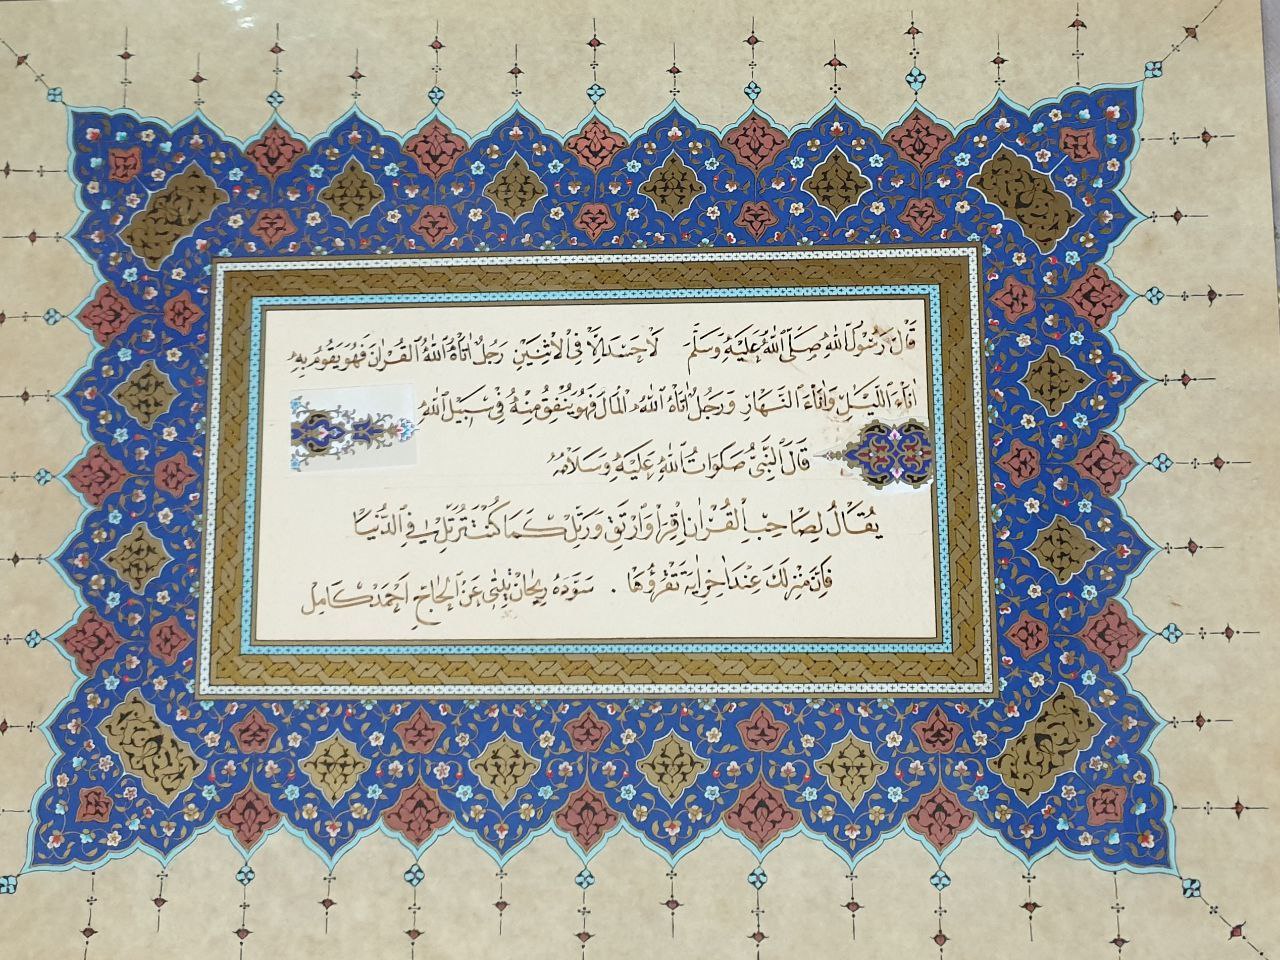 قَالَ رَسُولُ اللهِ صَلَّى اللهُ عَلَيْهِ وَسَلَّمَ لَا حَسَدَ إِلَّا فِي الْاثْنَيْنِ رَجُلٌ اٰتَاهُ اللهُ الْقُرْاٰنَ فَهُوَ يَقُومُ بِهِ
اٰنَاءَ اللَّيْلِ وَاٰنَاءَ النَّهَارِ وَرَجُلٌ اٰتَاهُ اللهُ الْمَالَ فَهُوَ يُنْفِقُ مِنْهُ فِي سَبِيلِ اللهِ
قَالَ النَّبِيُّ صَلَوَاتُ اللهِ عَلَيْهِ وَسَلَامُهُ
يُقَالُ لِصَاحِبِ الْقُرْاٰنِ اِقْرَأْ وَارْتَقِ وَرَتِّلْ كَمَا كُنْتَ تُرَتِّلُ فِي الدُّنْيَا
فَاِنَّ مَنْزِلَكَ عِنْدَ اٰخِرِ اٰيَةٍ تَقْرَؤُهَا . سَوَّدَهُ عَنِ الْحَاجِّ اَحْمَدْ كَامِلْ